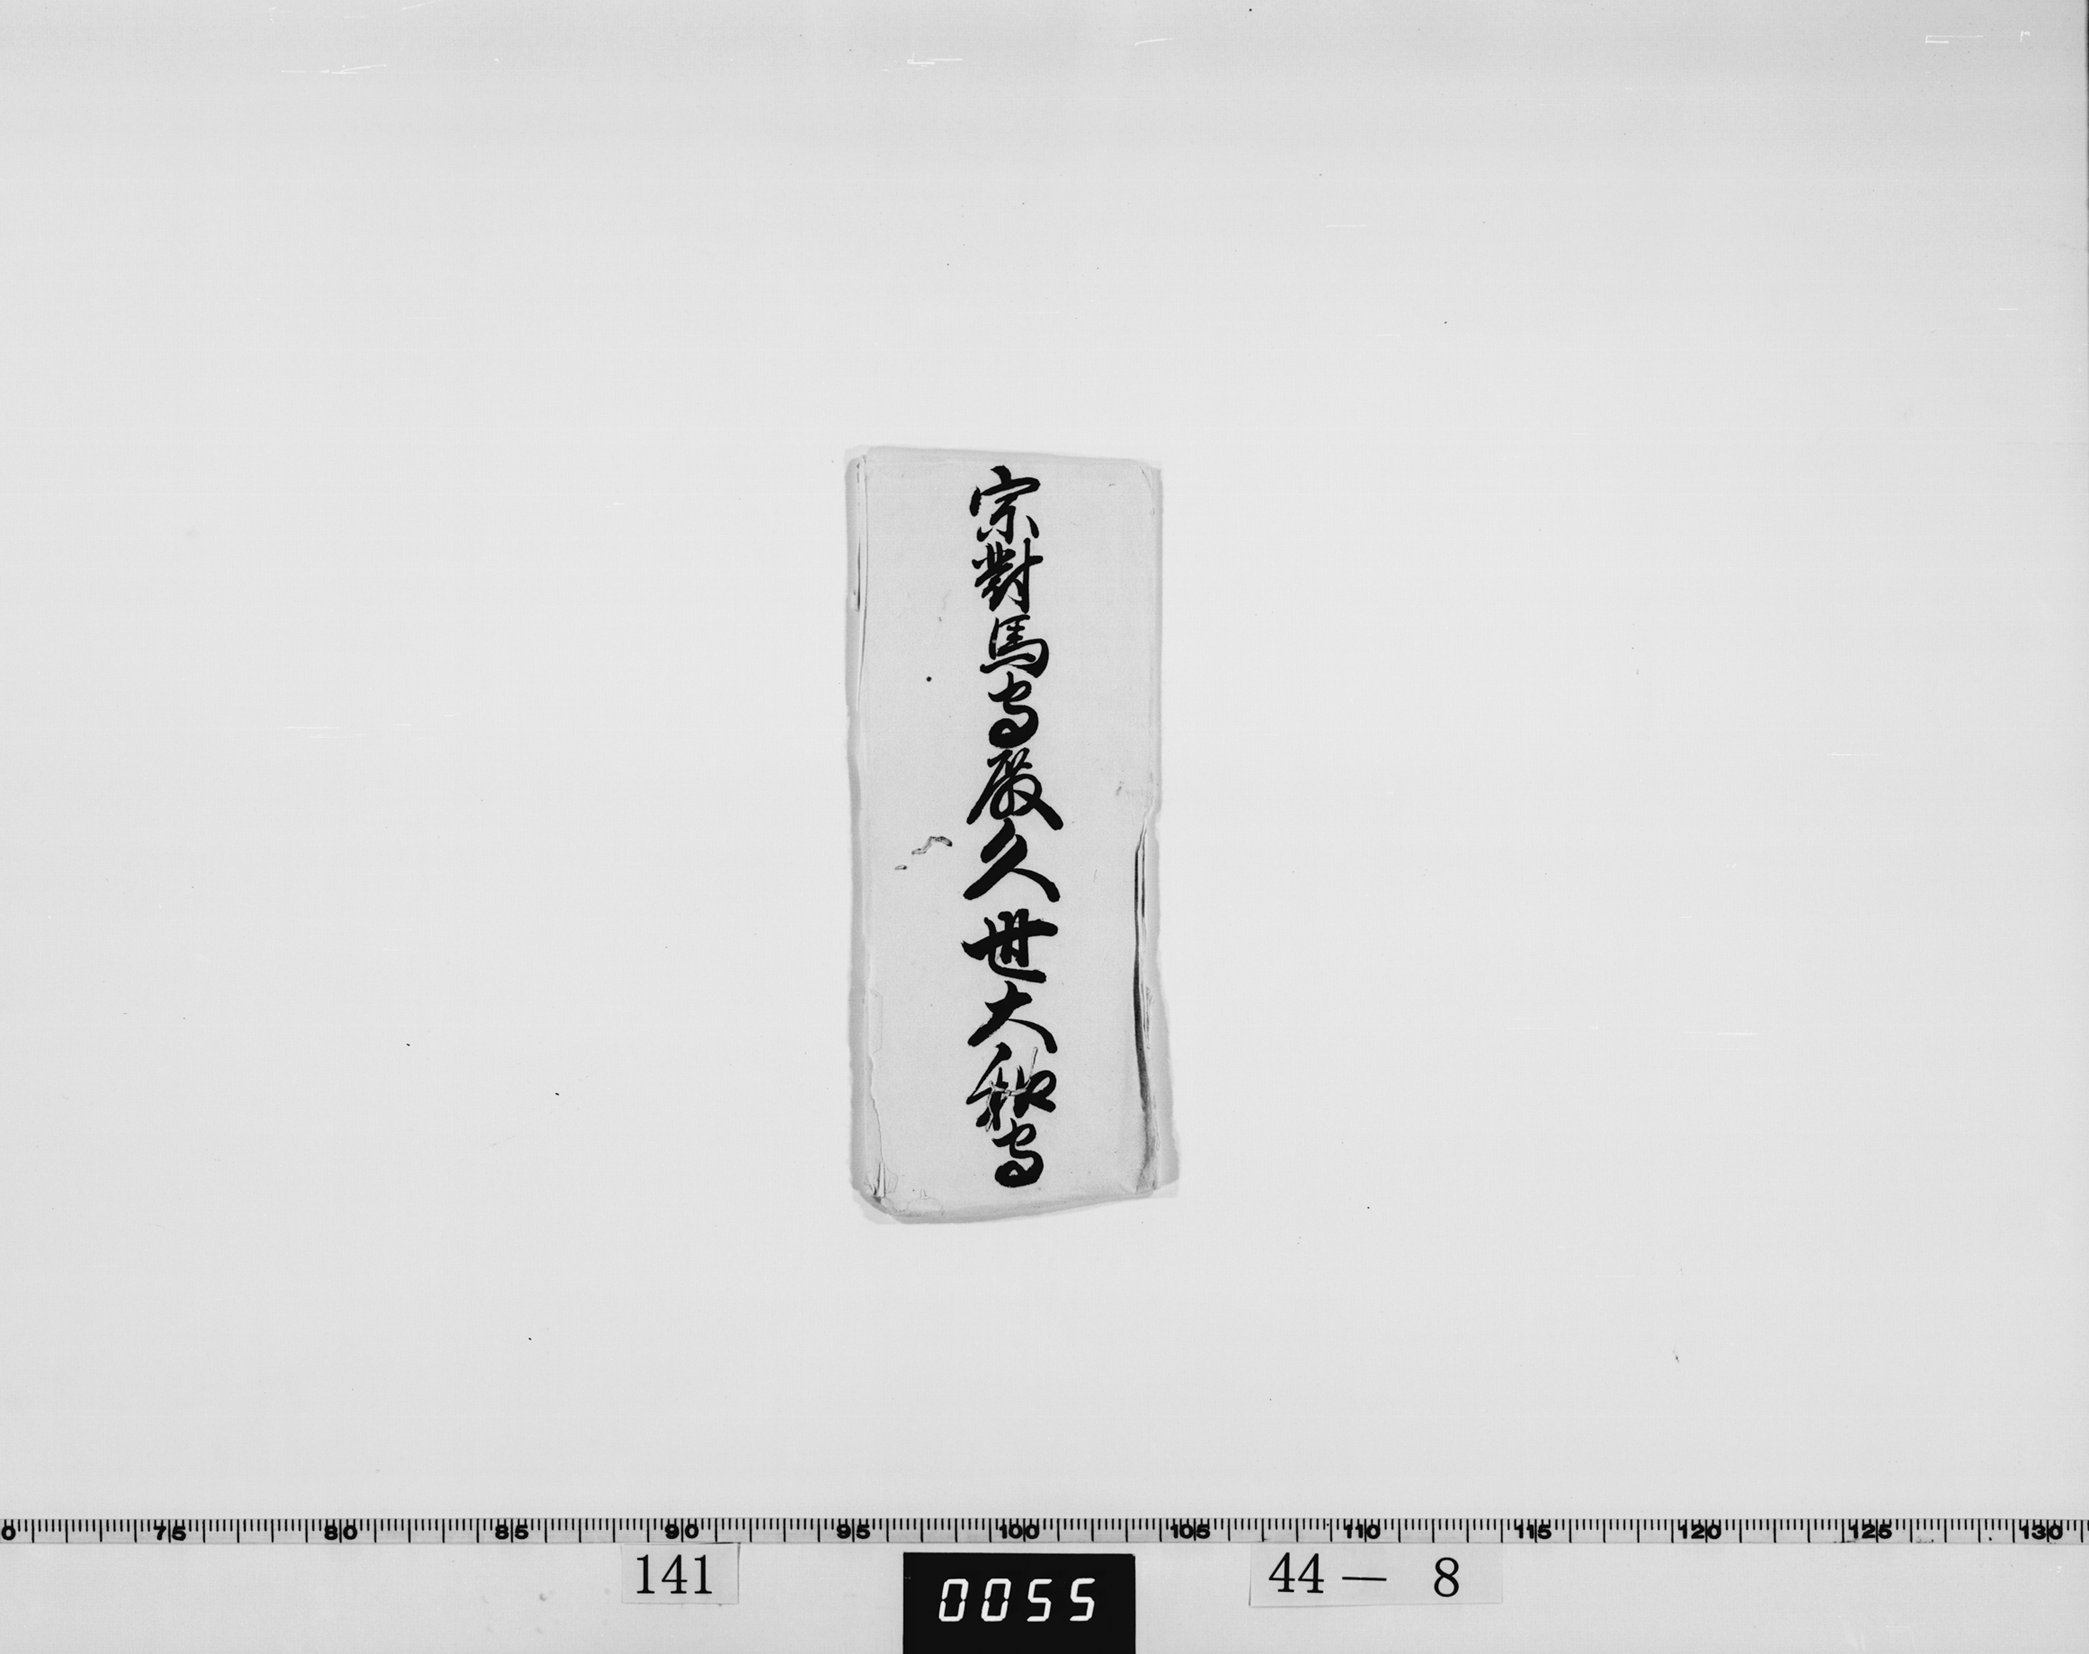 宗對馬守殿久世大和守
0 75 80 85 90 95 100 105 110 115 120 125 130
141
0055
44— 8